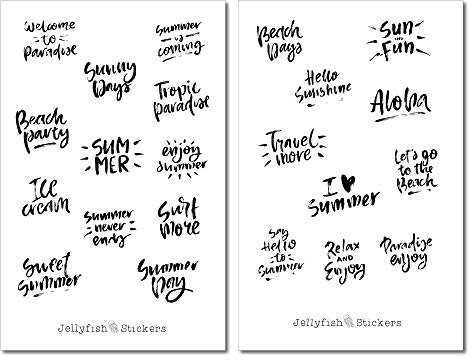 Welcome
to
Paradise
Summer
is
coming
Sunny
Days
Tropic
paradise
Beach
party
SUM
MER
enjoy
summer
ICE
cream
Summer
never
ends
Surf
more
Sweet
Summer
Summer
Day
Jellyfish Stickers
Beach
Days
Sun
and
Fun
Hello
Sunshine
Aloha
Travel
more
Let's go
to the
Beach
I ♥
Summer
Say
Hello
to
Summer
Relax
AND
Enjoy
Paradise
enjoy
Jellyfish Stickers